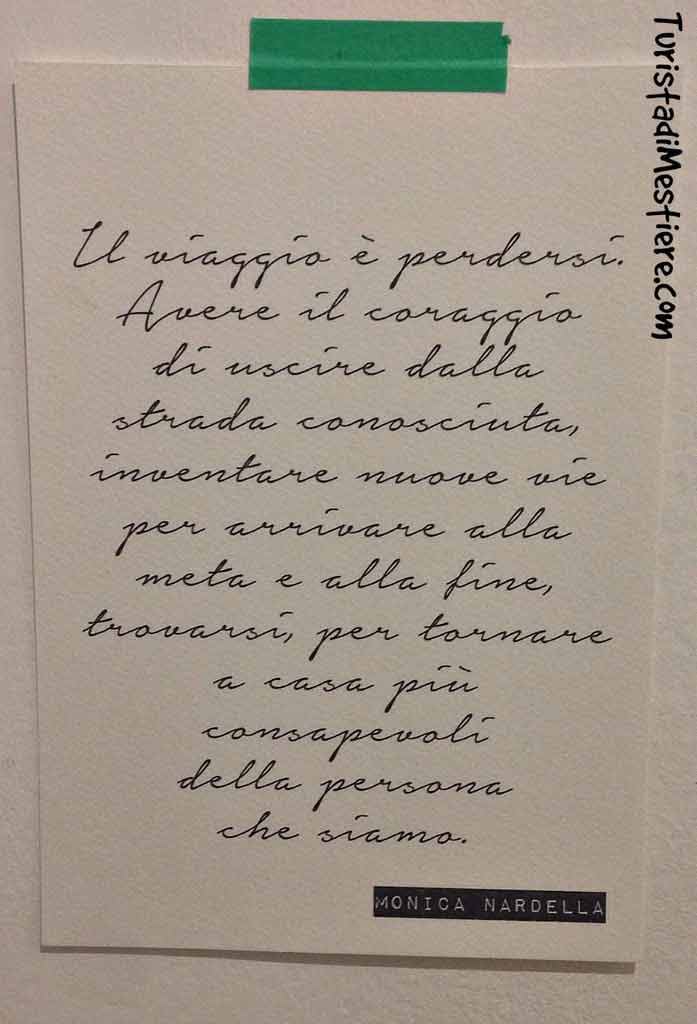 Il viaggio è perdersi.
Avere il coraggio
di uscire dalla
strada conosciuta,
inventare nuove vie
per arrivare alla
meta e alla fine,
trovarsi, per tornare
a casa più
consapevoli
della persona
che siamo.
MONICA NARDELLA
TuristadiMestiere.com